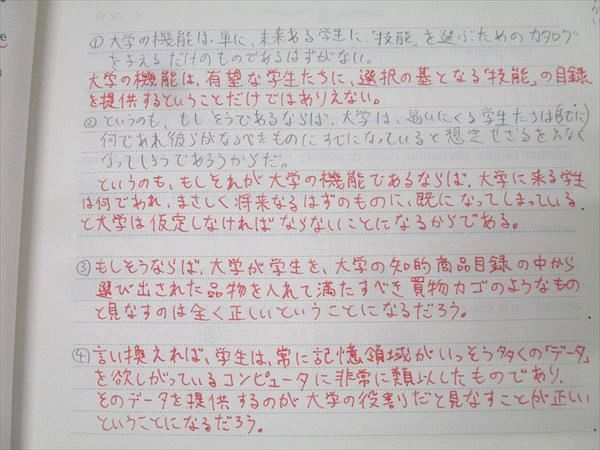 ① 大学の機能は、単に、未来ある学生に、"技能"を選ぶためのカタログ
を与えるだけのものであるはずがない。
大学の機能は、有望な学生たちに、選択の基となる"技能"の目録
を提供するということだけではありえない。
② というのも、もしそうであるならば、大学は、学生たちは(すでに)
何であれ彼らがなるべきものにすでになっていると想定せざるをえなく
なってしまうであろうからだ。
というのも、もしそれが大学の機能であるならば、大学に来る学生
は何であれ、まさしく将来なるはずのものに、既になってしまっている
と大学は仮定しなければならないことになるからである。
③ もしそうならば、大学が学生を、大学の知的商品目録の中から
選び出された品物を入れて満たすべき買物カゴのようなもの
と見なすのは全く正しいということになるだろう。
④ 言い換えれば、学生は、常に記憶領域がいっそう多くの「データ」
を欲しがっているコンピュータに非常に類似したものであり、
そのデータを提供するのが大学の役割だと見なすことが正しい
ということになるだろう。